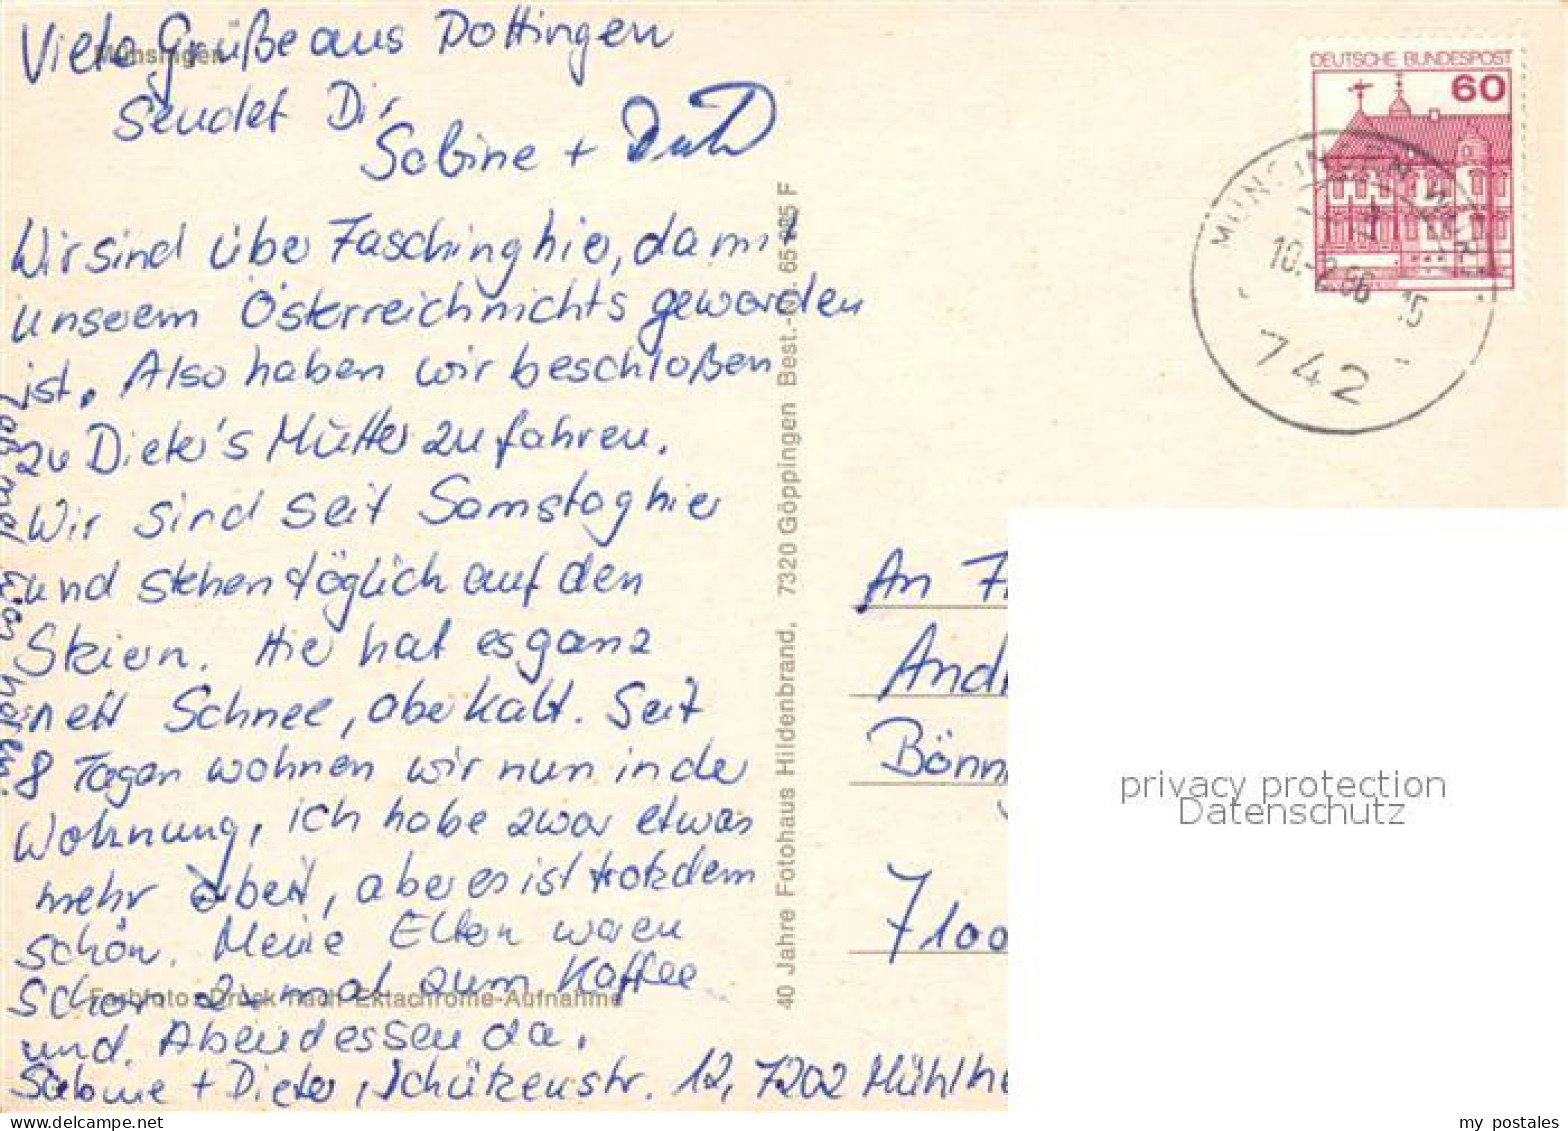 Viele Grüße aus Dottingen
Münsingen
sendet Dir
Sabine +
Wir sind über Fasching hier, da mit
unserem Österreich nichts geworden
ist. Also haben wir beschloßen
zu Dieter's Mutter zu fahren.
Wir sind seit Samstag hier
und stehen täglich auf den
Skiern. Hier hat es ganz
nett Schnee, aber kalt. Seit
8 Tagen wohnen wir nun in der
Wohnung, ich habe zwar etwas
mehr Arbeit, aber es ist trotzdem
schön. Meine Eltern waren
schon 2 mal zum Kaffee
Farbfoto - Druck nach Ektachrome-Aufnahme
und Abendessen da.
Sabine + Dieter, Schützenstr. 12, 7202 Mühlhe
Laß mal von hören
40 Jahre Fotohaus Hildenbrand, 7320 Göppingen Best.-Nr. 65 985 F
DEUTSCHE BUNDESPOST
60
MÜNSINGEN, WÜRTT
10.-2.86 15
742
An F
Andr
Bönni
7100
privacy protection
Datenschutz
delcampe.net
my postales